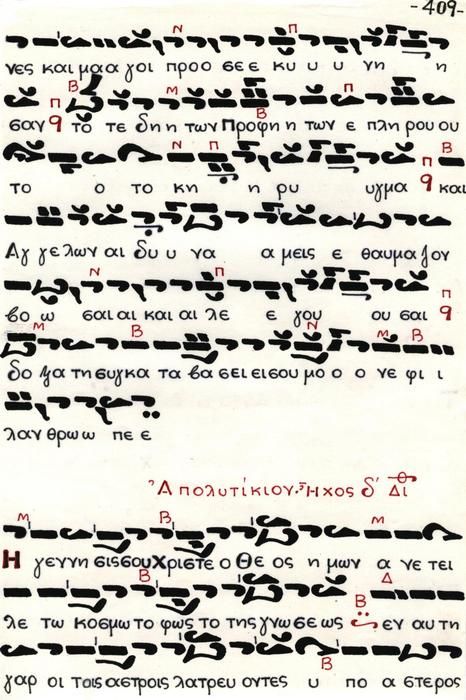 -409-
Ν Π
νες και μα α γοι προο σε ε κυ υ υ νη η
Β Μ Π
σαν π q το τε δη η των Προφη η των ε πλη ρου ου
Β
Ν Π Β
το ο το κη η ρυ υγμα π q και
Αγ γε λων αι δυ υ να α μεις ε θαυμα ζον
Ν Π
βο ω σαι αι και αι λε ε γου ου σαι π q
Μ Β Ν Μ Β
δο ξα τη συγκα τα βα σει ει σου μο ο ο νε φι ι
λαν θρω ω πε ε
Ἀπολυτίκιον. Ἦχος δ' Δι
Μ Β Μ
Η γεννη σις σου Χριστε ο Θε ος η μων α νε τει
Β Δ
λε τω κοσμω το φως το της γνω σε ως Β εν αυ τη
γαρ οι τοις αστροις λατρευ οντες υ πο α στερος
Β